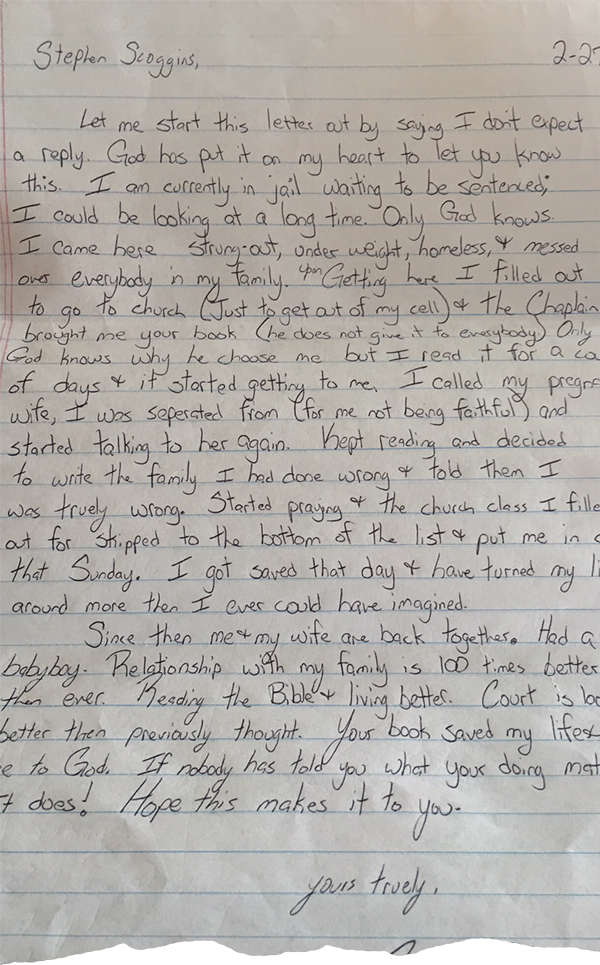 Stephen Scoggins,
2-27
Let me start this letter out by saying I don't expect
a reply. God has put it on my heart to let you know
this. I am currently in jail waiting to be sentenced;
I could be looking at a long time. Only God knows.
I came here strung-out, under weight, homeless, & messed
over everybody in my family. upon Getting here I filled out
to go to church (Just to get out of my cell) & the Chaplain
brought me your book (he does not give it to everybody) Only
God knows why he choose me but I read it for a co
of days & it started getting to me. I called my pregn
wife, I was seperated from (for me not being faithful) and
started talking to her again. Kept reading and decided
to write the family I had done wrong & told them I
was truely wrong. Started praying & the church class I fille
out for skipped to the bottom of the list & put me in
that Sunday. I got saved that day & have turned my li
around more then I ever could have imagined.
Since then me & my wife are back together. Had a
babyboy. Relationship with my family is 100 times better
then ever. Reading the Bible & living better. Court is loo
better then previously thought. Your book saved my life &
e to God. If nobody has told you what your doing mat
t does! Hope this makes it to you.
yours truely,